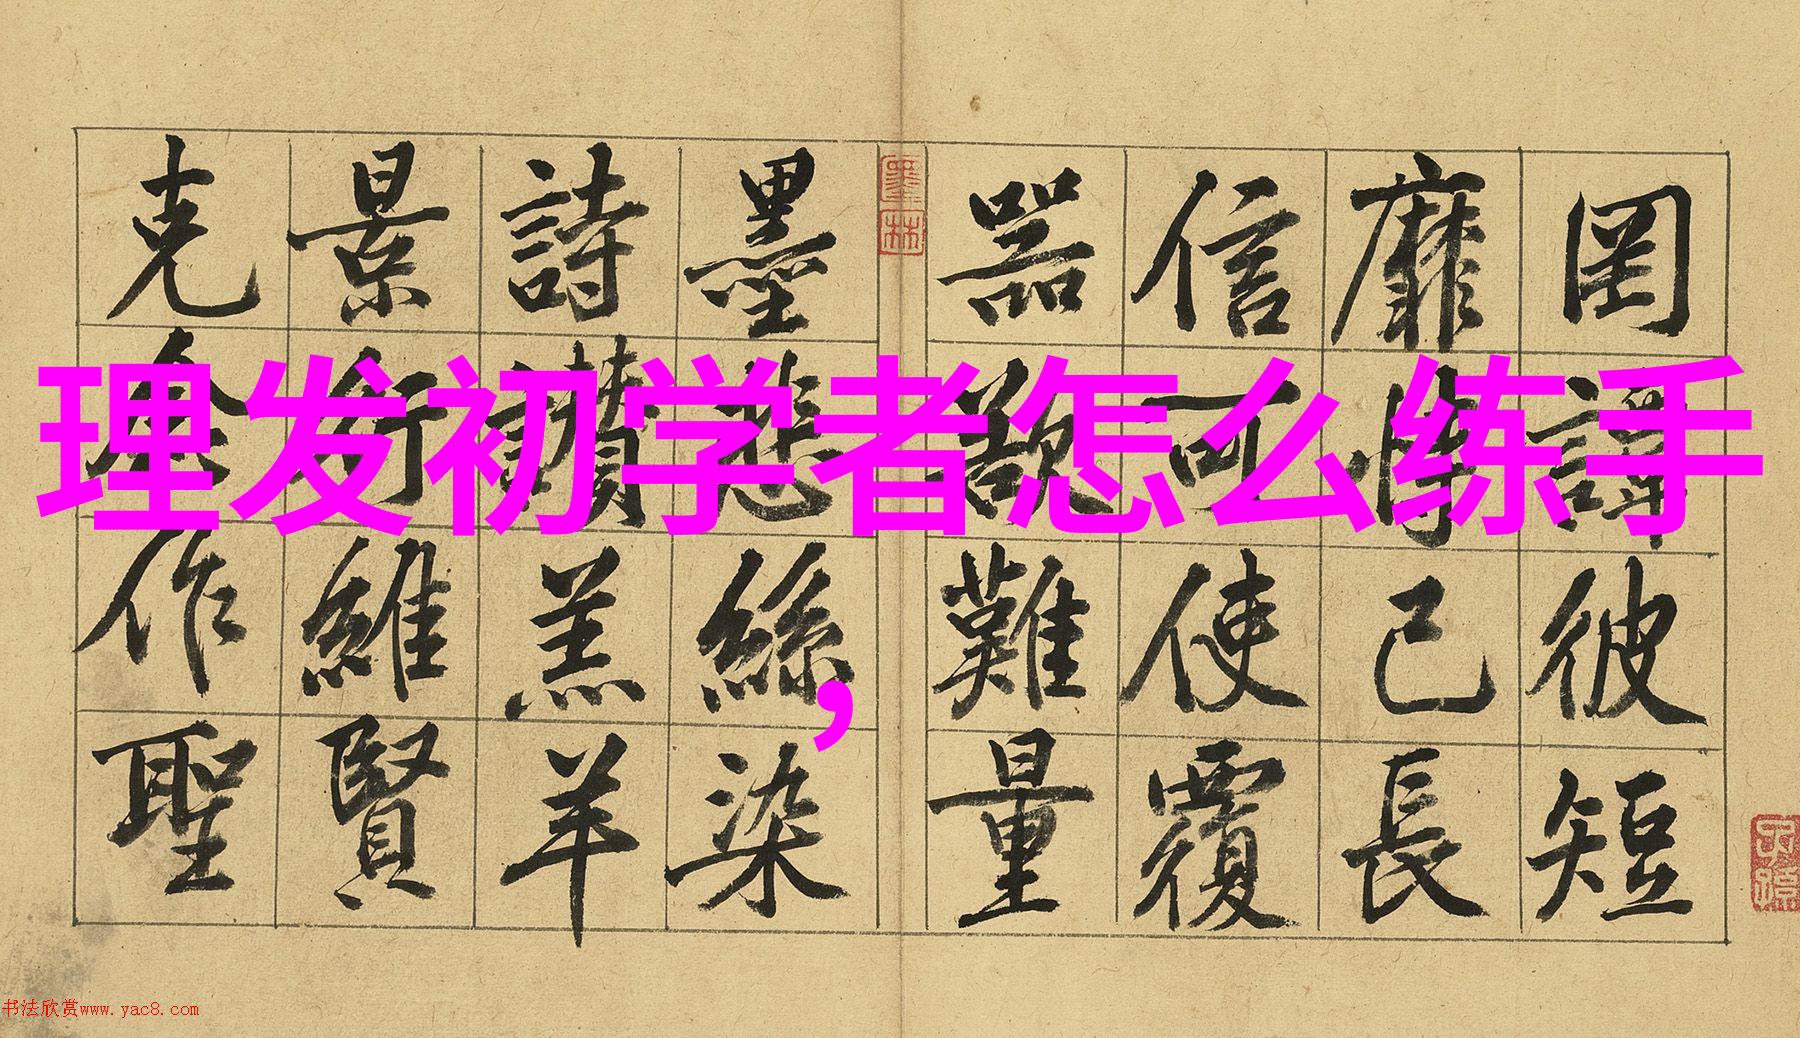 理发初学者怎么练手
,
罔譚彼短
靡恃己長
信可使覆
器欲難量
墨悲絲染
詩讃羔羊
景行維賢
克念作聖
墨林
书法欣赏www.yac8.com